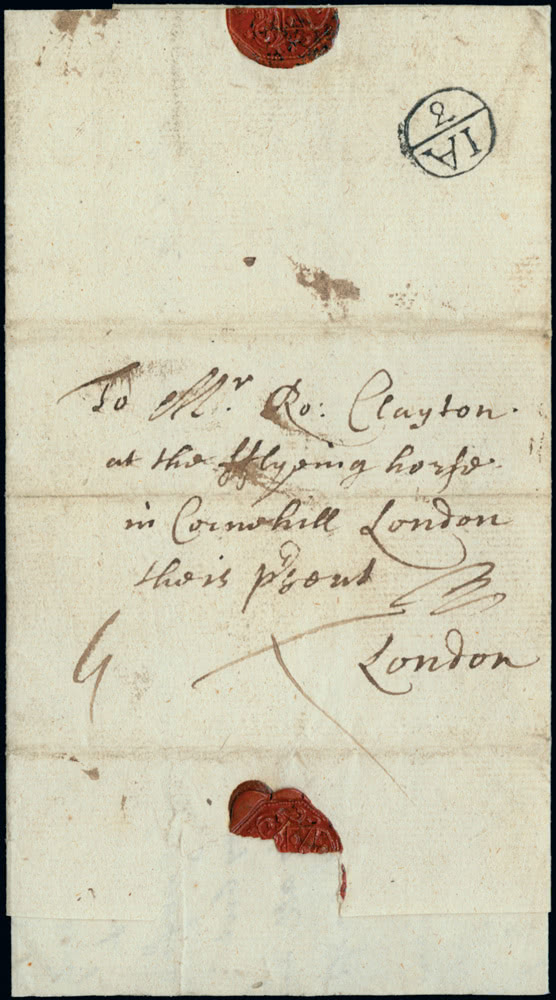 IA
3
To Mr. Ro: Clayton.
at the fflyeing horse
in Cornehill London
theis psent
London